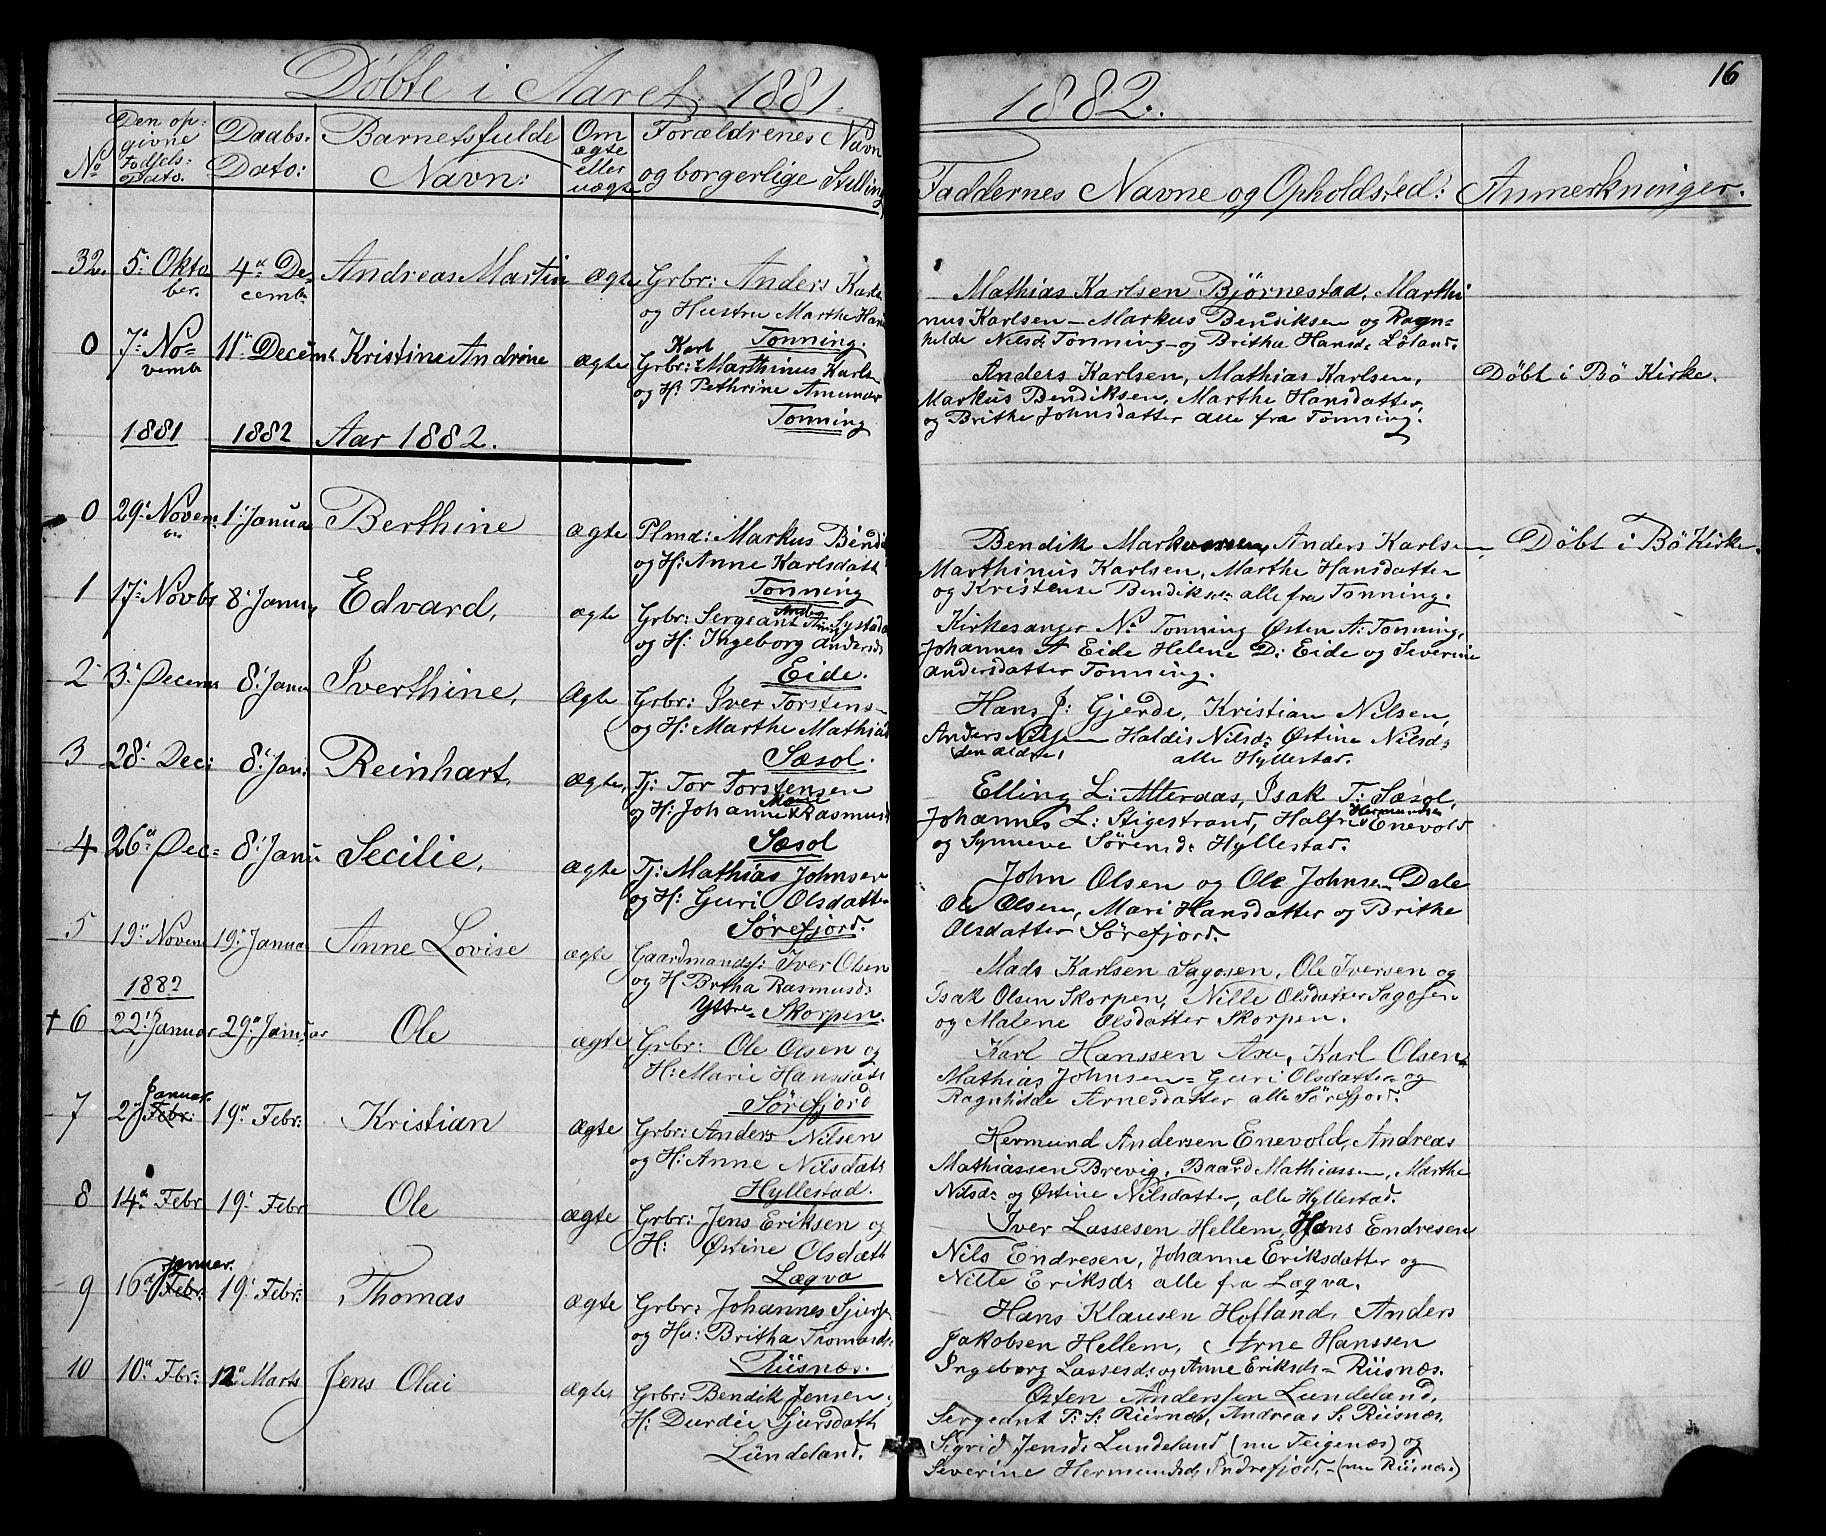 Døbte i Aaret 1881.
No
Den op-
givne
Fødsels-
Dato.
Daabs-
Dato:
Barnets fulde
Navn:
Om
ægte
eller
uægte
Forældrenes Navn
og borgerlige Stilling
32. 5: Okto
ber.
4de De-
cemb
Andreas Martin ægte Grbr: Anders Karls
og Hustru Marthe Hans
Tonning.
0 7de No-
vemb
11te Decemb Kristine Andrine ægte Karl
Grbr: Marthinus Karls
og H: Pethrine Amunds
Tonning
1881 1882 Aar 1882.
0 29: Novem
br
1: Januar Berthine ægte Plmd: Markus Bendi
og H: Anne Karlsdatt
Tonning
1 17: Novbr 8: Janu Edvard, ægte Grbr: Sergeant Systad
og H: Ingeborg Andersd
Eide.
2 3: Decem 8: Janu Iverthine, Ægte Grbr: Iver Torstens-
og H: Marthe Mathias
Sæsol.
3 28: Dec: 8: Jan: Reinhart, ægte, Tj: Tor Torstensen
og H: Johanne Marie Rasmusd
Sæsol
4 26de Dec- 8: Janu Secilie, ægte Tj: Mathias Johnsen
og H: Guri Olsdatt-
Sørefjord.
5 19: Novem 19: Januar Anne Lovise ægte Gaardmandsf: Iver Olsen
og H Britha Rasmusd:
Yttre- Skorpen.
1882
† 6 22: Januar 29: Januar Ole ægte Grbr: Ole Olsen og
H: Marie Hansdatt
Sørefjord
7 2: Januar Febr: 19de Febr: Kristian ægte Grbr: Anders Nilsen
og H: Anne Nilsdatt
Hyllestad.
8 14de Febr 19: Febr Ole ægte Grbr: Jens Eriksen og
H: Østine Olsdatt
Lægva
9 16de Januar. Febr: 19: Febr: Thomas ægte Grbr: Johannes Sjurs
og Hu: Britha Tromasd:
Riisnæs.
10 10de Fbr: 12de Marts Jens Olai ægte Grbr: Bendik Jensen
H: Durdei Sjursdatt
Lündeland.
1882.
16
Faddernes Navne og Opholdssted: Anmerkninger.
Mathias Karlsen Bjørnestad, Marthi
nus Karlsen - Markus Bendiksen og Ragn-
hilde Nilsd: Tonning - og Britha Hansd: Løland.
Anders Karlsen, Mathias Karlsen, Døbt i Bø Kirke.
Markus Bendiksen, Marthe Hansdatter,
og Brithe Johnsdatter alle fra Tonning.
Bendik Markussen, Anders Karlsen Døbt i Bø Kirke.
Marthinus Karlsen, Marthe Hansdatter
og Kristense Bendiksd: alle fra Tonning.
Kirkesanger N: Tonning Østen A: Tonning,
Johannes A Eide Helene D: Eide og Severine
Andersdatter Tonning.
Hans J: Gjerde, Kristian Nilsen,
Anders Nilsen Haldis Nilsd: Østine Nilsd:
den ældre, alle Hyllestad.
Elling L: Atteraas, Isak T: Sæsol,
Johannes L: Stigestrand, Halfrid Hermundsen Enevold
og Synneve Sørensd: Hyllestad.
John Olsen og Ole Johnsen Dale
Ole Olsen, Mari Hansdatter og Brithe
Olsdatter Sørefjord.
Mads Karlsen Sagosen, Ole Iversen og
Isak Olsen Skorpen, Nille Olsdatter Sagosen
og Malene Olsdatter Skorpen.
Karl Hanssen Ask, Karl Olsen
Mathias Johnsen - Guri Olsdatter og
Ragnhilde Arnesdatter alle Sørefjord.
Hermund Andersen Enevold, Andreas
Mathiassen Brevig, Baard Mathiassen, Marthe
Nilsd: og Østine Nilsdatter, alle Hyllestad.
Iver Lassesen Hellem, Hans Endresen
Nils Endresen, Johanne Eriksdatter og
Nille Eriksd: alle fra Lægva.
Hans Klausen Hofland, Anders
Jakobsen Hellem, Arne Hanssen
Ingeborg Lassesd: og Anne Eriksd: - Riisnæs.
Østen Anderssen Lundeland,
Sergeant P: S: Riisnæs, Andreas S. Riisnæs
Sigrid Jensd: Lundeland (nu Teigenæs) og
Severine Hermundsd, Indrefjord - (nu Riisnæs)